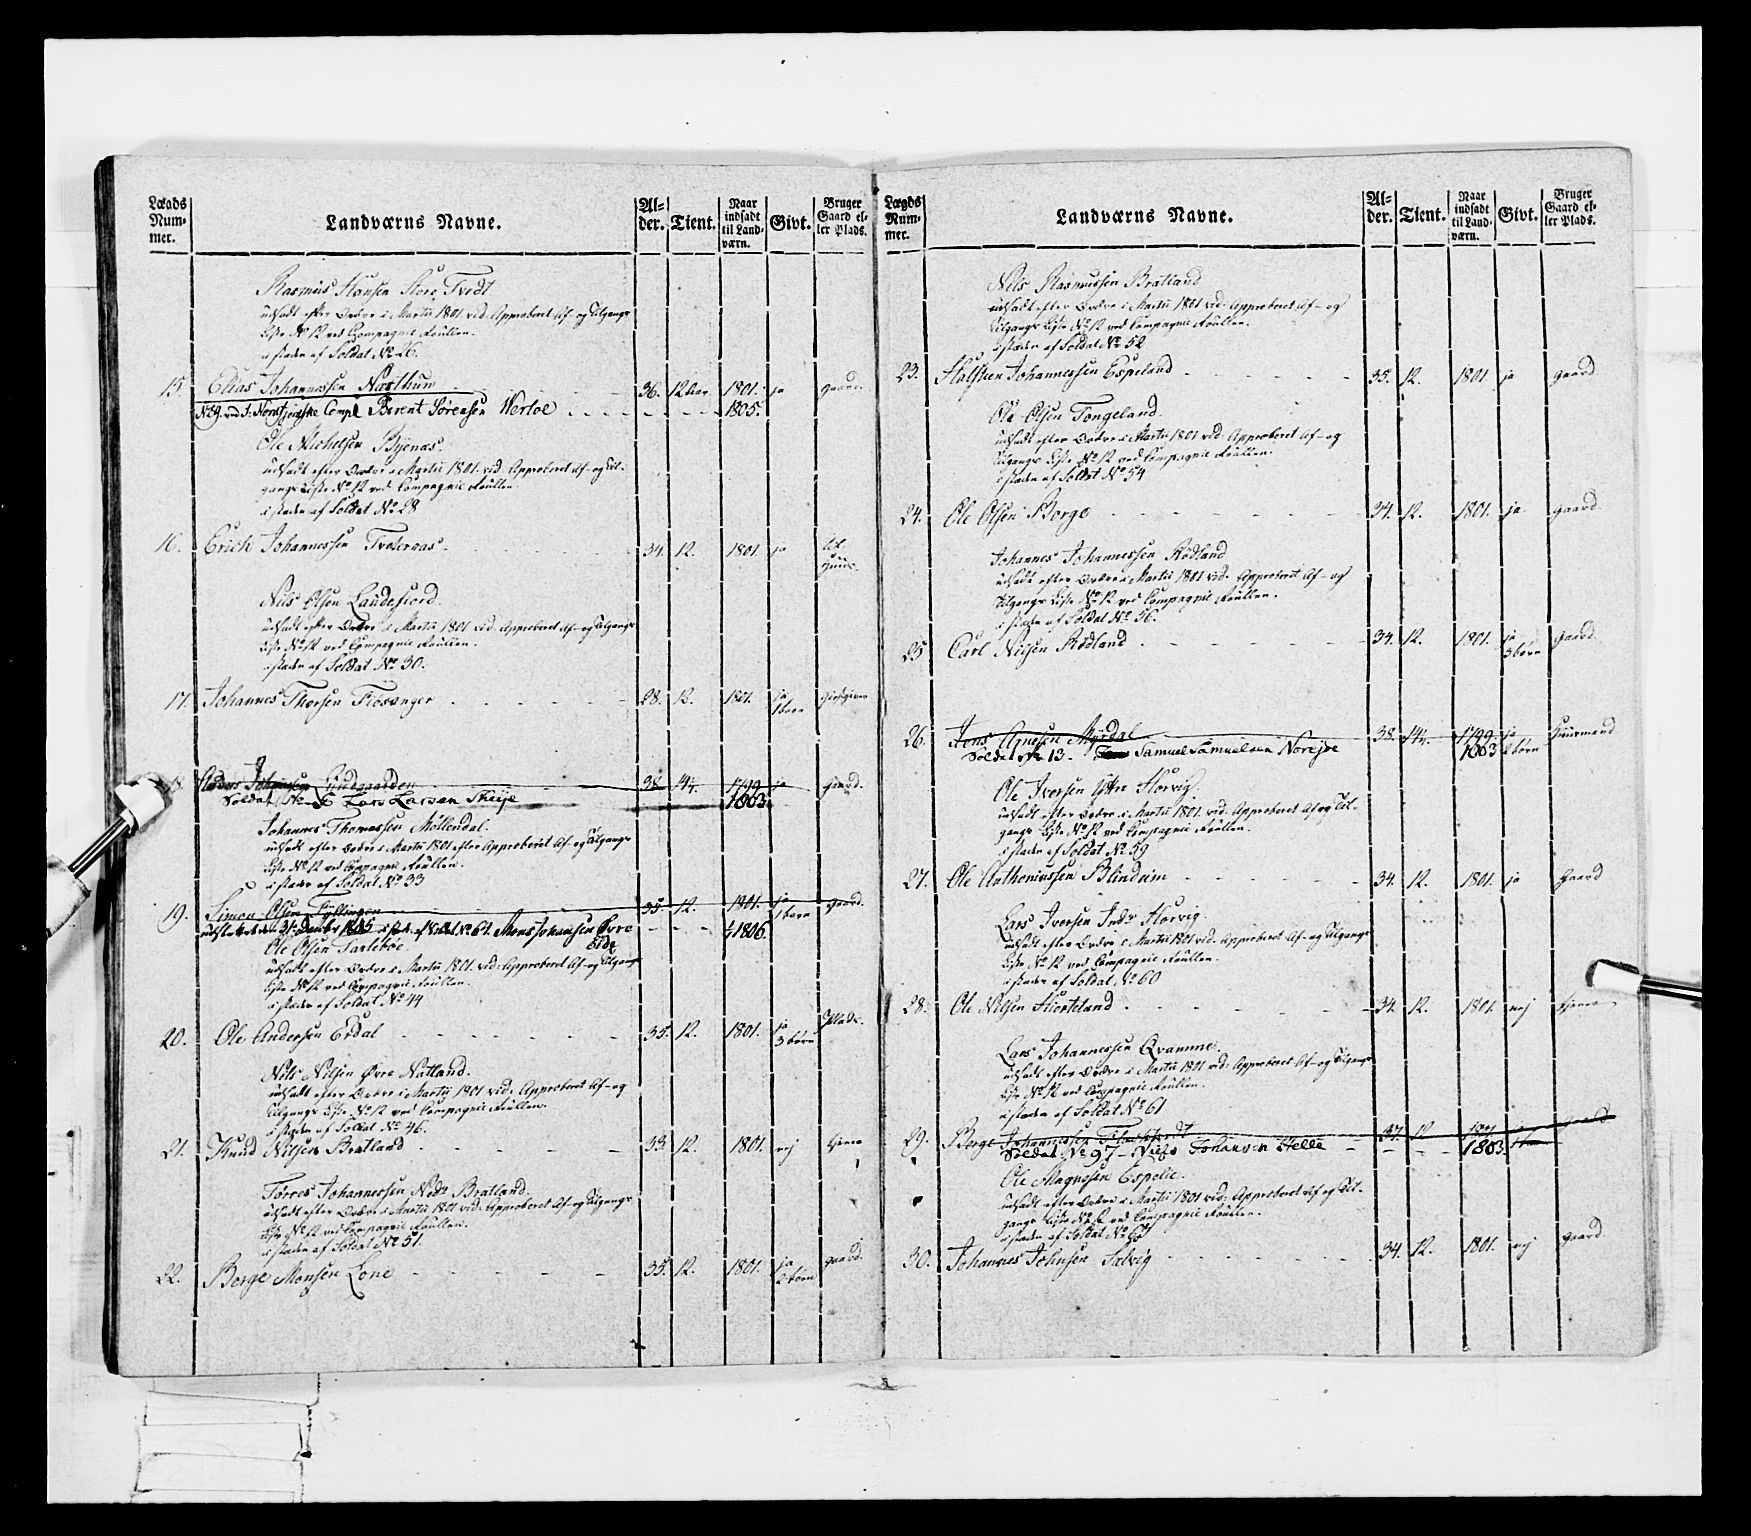 Lægds
Num-
mer.
Landværns Navne.
Al-
der.
Tient.
Naar
indsadt
til Land-
værn.
Givt.
Bruger
Gaard el-
ler Plads.
Rasmus Hansen Store Tvedt
udsadt efter Ordre i Martii 1801 vid: Approberet Af- og Tilgangs
Liste No 12 ved Compagnie Roullen.
i stæden af Soldat No 26.
15. Elias Johannessen Næsthun 36. 12 1801. ja gaard.
No 9. ved Compl Berent Sørensen Werloe 1805.
Ole Michelsen Byenæs.
udsadt efter Ordre i Martii 1801. vid: Approberet Af- og Til-
gangs Liste No 12 ved Compagnie Roullen.
i stæden af Soldat No 28
16. Erich Johannessen Tveteraas. 34. 12. 1801. ja
Nils Olsen Laudefiord.
udsadt efter Ordre i Martii 1801 vid: Approberet Af- og Tilgangs
Liste No 12 ved Compagnie Roullen.
i stæden af Soldat No 30.
17. Johannes Thorsen Flosanger 28. 12. 1801. ja
1 børn
18. Anders Johansen Lindgaarden 38. 14 1799 ja gaard.
Soldat No Lars Larsen Skeije 1803.
Johannes Thomassen Møllendal.
udsadt efter Ordre i Martii 1801 efter Approberet Af- og Tilgangs
Liste No 12 ved Compagnie Roullen.
i stæden af Soldat No 33
19. Simon Olsen Fyllingen 35. 12. 1801. ja gaard.
1 børn
udslettet den 31 December 1805 i sted. af Soldat No 64. Mons Johansen Øvre 1806.
Eide
Ole Olsen Tarlebøe
udsadt efter Ordre i Martii 1801. vid: Approberet Af- og Tilgangs
Liste No 12 ved Compagnie Roullen.
i stæden af Soldat No 44
20. Ole Andersen Erdal 35. 12. 1801. ja Plads.
3 børn
Nils Nilsen Øvre Natland.
udsadt efter Ordre i Martii 1801 vid: Approberet Af- og
Tilgangs Liste No 12 ved Compagnie Roullen.
i stæden af Soldat No 46.
21. Knud Nilsen Bratland 33. 12. 1801. nej
Torres Johannessen Nedr Bratland.
udsadt efter Ordre i Martii 1801 vid: Approberet Af- og Tilgangs
Liste No 12 ved Compagnie Roullen.
i stæden af Soldat No 51.
22. Børge Monsen Lone 35. 12. 1801. ja gaard.
2 børn
Lægds
Num-
mer.
Landværns Navne.
Al-
der.
Tient.
Naar
indsadt
til Land-
værn.
Givt.
Bruger
Gaard el-
ler Plads.
Nils Rasmussen Bratland
udsadt efter Ordre i Martii 1801 vid: Approberet Af- og
Tilgangs Liste No 12 ved Compagnie Roullen.
i stæden af Soldat No 52
23. Halsten Johannessen Espeland 35. 12. 1801 ja gaard
Ole Olsen Tongeland.
udsadt efter Ordre i Martii 1801 vid: Approberet Af- og
Tilgangs Liste No 12 ved Compagnie Roullen.
i stæden af Soldat No 54
24. Ole Olsen Borge 34. 12. 1801. ja gaard.
Johannes Johannessen Rødland
udsadt efter Ordre i Martii 1801 vid: Approberet Af- og
Tilgangs Liste No 12 ved Compagnie Roullen.
i stæden af Soldat No 56.
25 Carl Nilsen Rødland 34. 12. 1801. ja gaard.
3 børn
26. Jens Arnesen Myrdal 38. 14 1799 ja Huusmand
Soldat No 13. Samuel Samuelsen Norejde 1803 2 børn
Ole Iversen Yttre Horvig.
udsadt efter Ordre i Martii 1801. vid: Approberet Af og Til-
gangs Liste No 12 ved Compagnie Roullen.
i stæden af Soldat No 59
27. Ole Anthoniussen Blindeim 34. 12. 1801. ja Gaard
Lars Iversen Indr Horvig.
udsadt efter Ordre i Martii 1801 vid: Approberet Af- og Tilgangs
Liste No 12 ved Compagnie Roullen.
i stæden af Soldat No 60
28. Ole Nilsen Hiorteland 34. 12. 1801. nej tjener
Lars Johannessen Qvamme.
udsadt efter Ordre i Martii 1801 vid: Approberet Af- og Tilgangs
Liste No 12 ved Compagnie Roullen.
i stæden af Soldat No 61
29. Børge Johannessen 37. 12 1801 gaard
Soldat No 97- Niels Johansen Helle 1803.
Ole Magnesen Espelie.
udsadt efter Ordre i Martii 1801 vid: Approberet Af og Til-
gangs Liste No 12 ved Compagnie Roullen.
i stæden af Soldat No
30. Johannes Johnsen Salvig 34. 12. 1801. nej gaard.